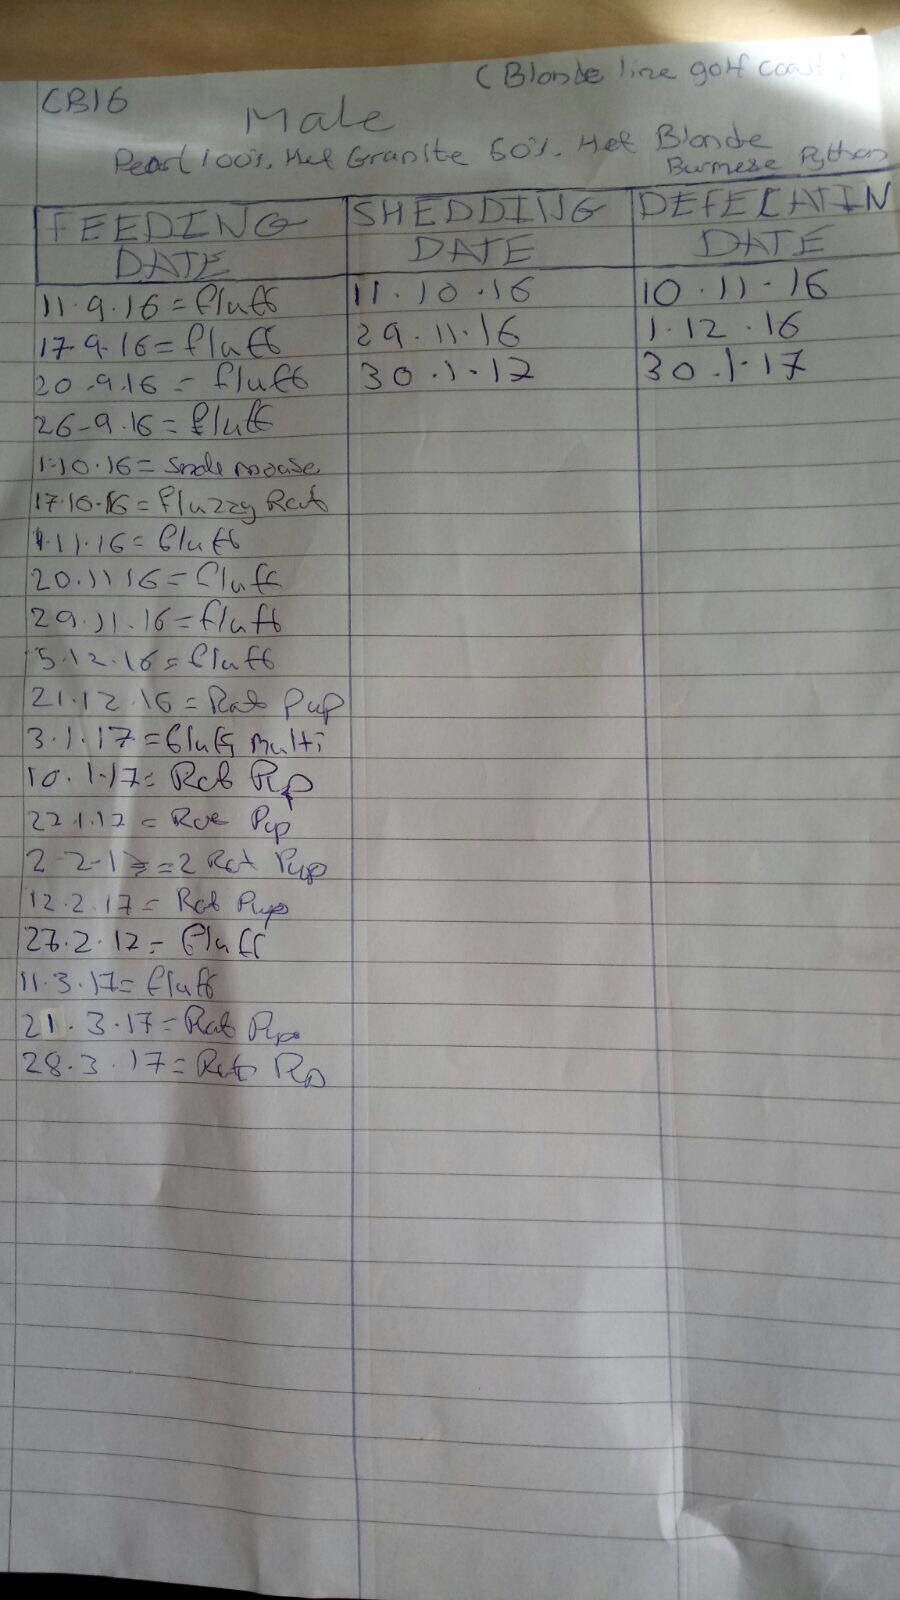 (Blonde line golf coast)
CB16
Male
Pearl 100%. Het Granite 50%. Het Blonde
Burmese Python
FEEDING DATE SHEDDING DATE DEFECATIN DATE
11.9.16 = fluff 11.10.16 10.11.16
17.9.16 = fluff 29.11.16 1.12.16
20.9.16 = fluff 30.1.17 30.1.17
26-9.16 = fluff
1.10.16 = mouse
17.10.16 = fluzzy Rat
1.11.16 = fluff
20.11 16 = fluff
29.11.16 = fluff
5.12.16 = fluff
21.12.16 = Rat Pup
3.1.17 = fluff multi
10.1.17 = Rat Pup
22.1.17 = Rat Pup
2-2-17 = 2 Rat Pup
12.2.17 = Rat Pup
27.2.17 = fluff
11.3.17 = fluff
21.3.17 = Rat Pup
28.3.17 = Rat Pup